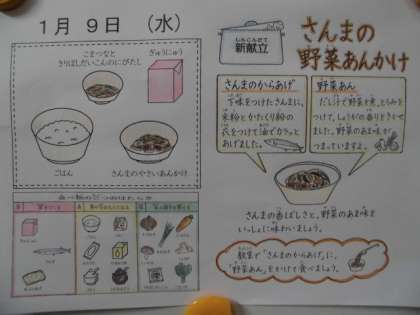 1月9日（水）
こまつなと
きりぼしだいこんのにびたし
ぎゅうにゅう
ごはん
さんまのやさいあんかけ
しんこんだて
新献立
さんまの
野菜あんかけ
さんまのからあげ
下味をつけたさんまに、
米粉とかたくり粉の
衣をつけて油でカラッと
あげました。
野菜あん
だし汁で野菜を煮、とろみを
つけて、しょうがの香りときかせ
ました。野菜のあま味が
つまっていますよ。
さんまの香ばしさと、野菜のあま味を
いっしょに味わいましょう。
教室で「さんまのからあげ」に、
「野菜あん」をかけて食べましょう。